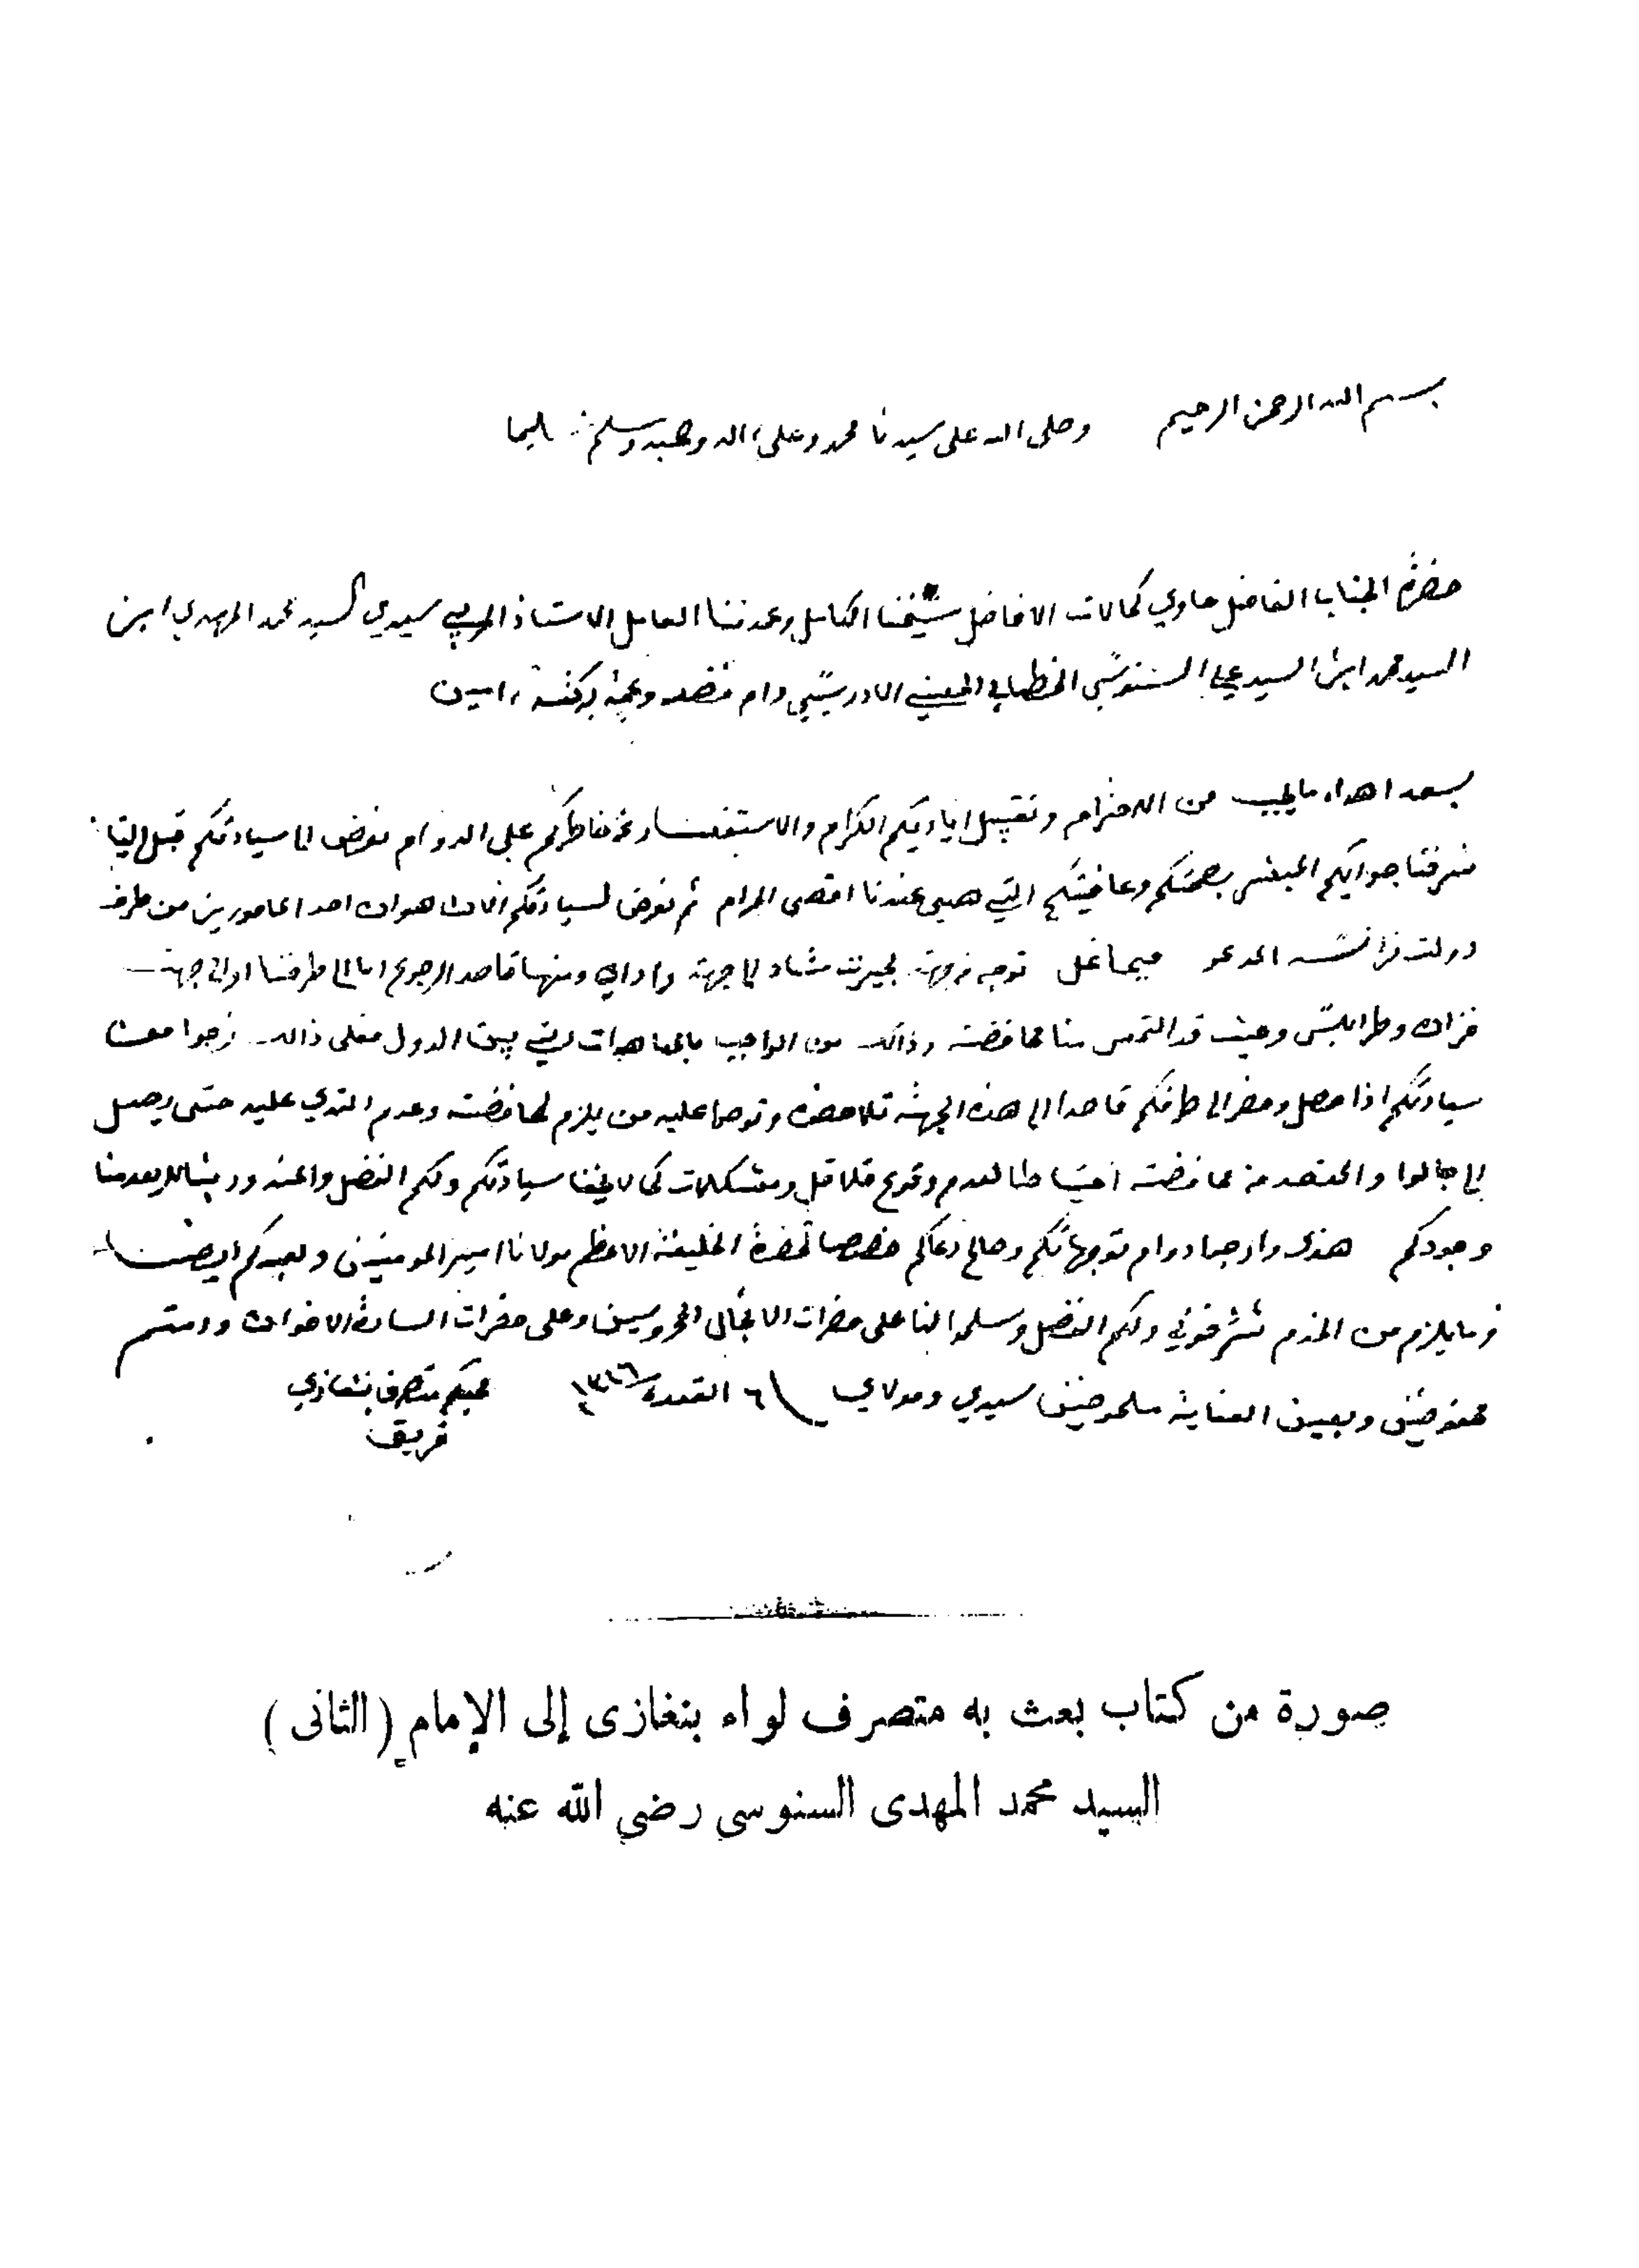 بسم الله الرحمن الرحيم وصلى الله على سيدنا محمد وعلى اله وصحبه وسلم تسليما
حضرة الجناب الفاضل حاوي كمالات الافاضل شيخنا الكامل وعمدتنا العامل الاستاذ المربي سيدي السيد محمد المهدي ابن
السيد محمد ابن السيد علي السنوسي الخطابي الحسني الادريسي دام فضله وعمة بركته امين
بعد اهداء مايجب من الاحترام وتقبيل اياديكم الكرام والاستفسار عن خاطركم على الدوام نعرض الى سيادتكم قبل
شرفنا جوابكم المبشر بصحتكم وعافيتكم التي هي عندنا اقصى المرام ثم نعرض لسيادتكم الان هوان احد المامورين من طرف
دولت فرانسه المدعو توجه من جهة الى جهة واداي ومنها قاصد الرجوع اما الى طرفنا او الى جهة
فزان وطرابلس وحيث قد التمس منا محافضته وذالك من الواجب بالمعاهدات التي بين الدول فعلى ذالك نرجوا من
سيادتكم اذا حصل وحضر الى طرفكم قاصدا الى هذه الجهة تلاحضوه وتوصوا عليه من يلزم لمحافضته وعدم التعدي عليه حتى يصل
الى جالوا والمقصد من محافضته احتياطا لعدم وقوع قلاقل ومشكلات كما لايخفا سيادتكم ولكم الفضل والمنه وربنا لايعدمنا
وجودكم هذا وارجوا دوام توجهاتكم وصالح دعاكم خصوصا لحضرة الخليفة الاعظم مولانا امير المومنين ولعبدكم ايضا
وما يلزم من الخدم تشرفوني ولكم الفضل وسلموا لنا على حضرات الانجال المحروسين وعلى حضرات السادة الاخوان ودمتم
محفوضين وبعين العناية ملحوضين سيدي ومولاي ٦ القعدة ١٣١٦ محبكم متصرف بنغازي
فريق
صورة من كتاب بعث به متصرف لواء بنغازى إلى الإمام (الثانى)
السيد محمد المهدى السنوسى رضى الله عنه